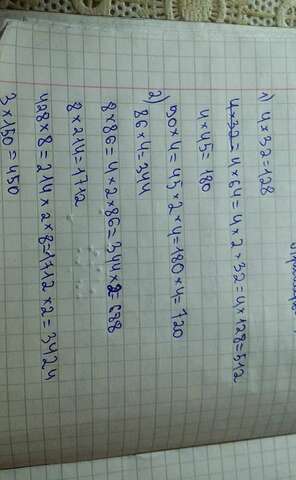 1) 4×32=128
4×32= 4×64=4×2×32=4×128=512
4×45=180
90×4=45×2×4=180×4=720
2) 86×4=344
8×86=4×2×86=344×2=688
8×214=1712
428×8=214×2×8=1712×2=3424
3×150=450